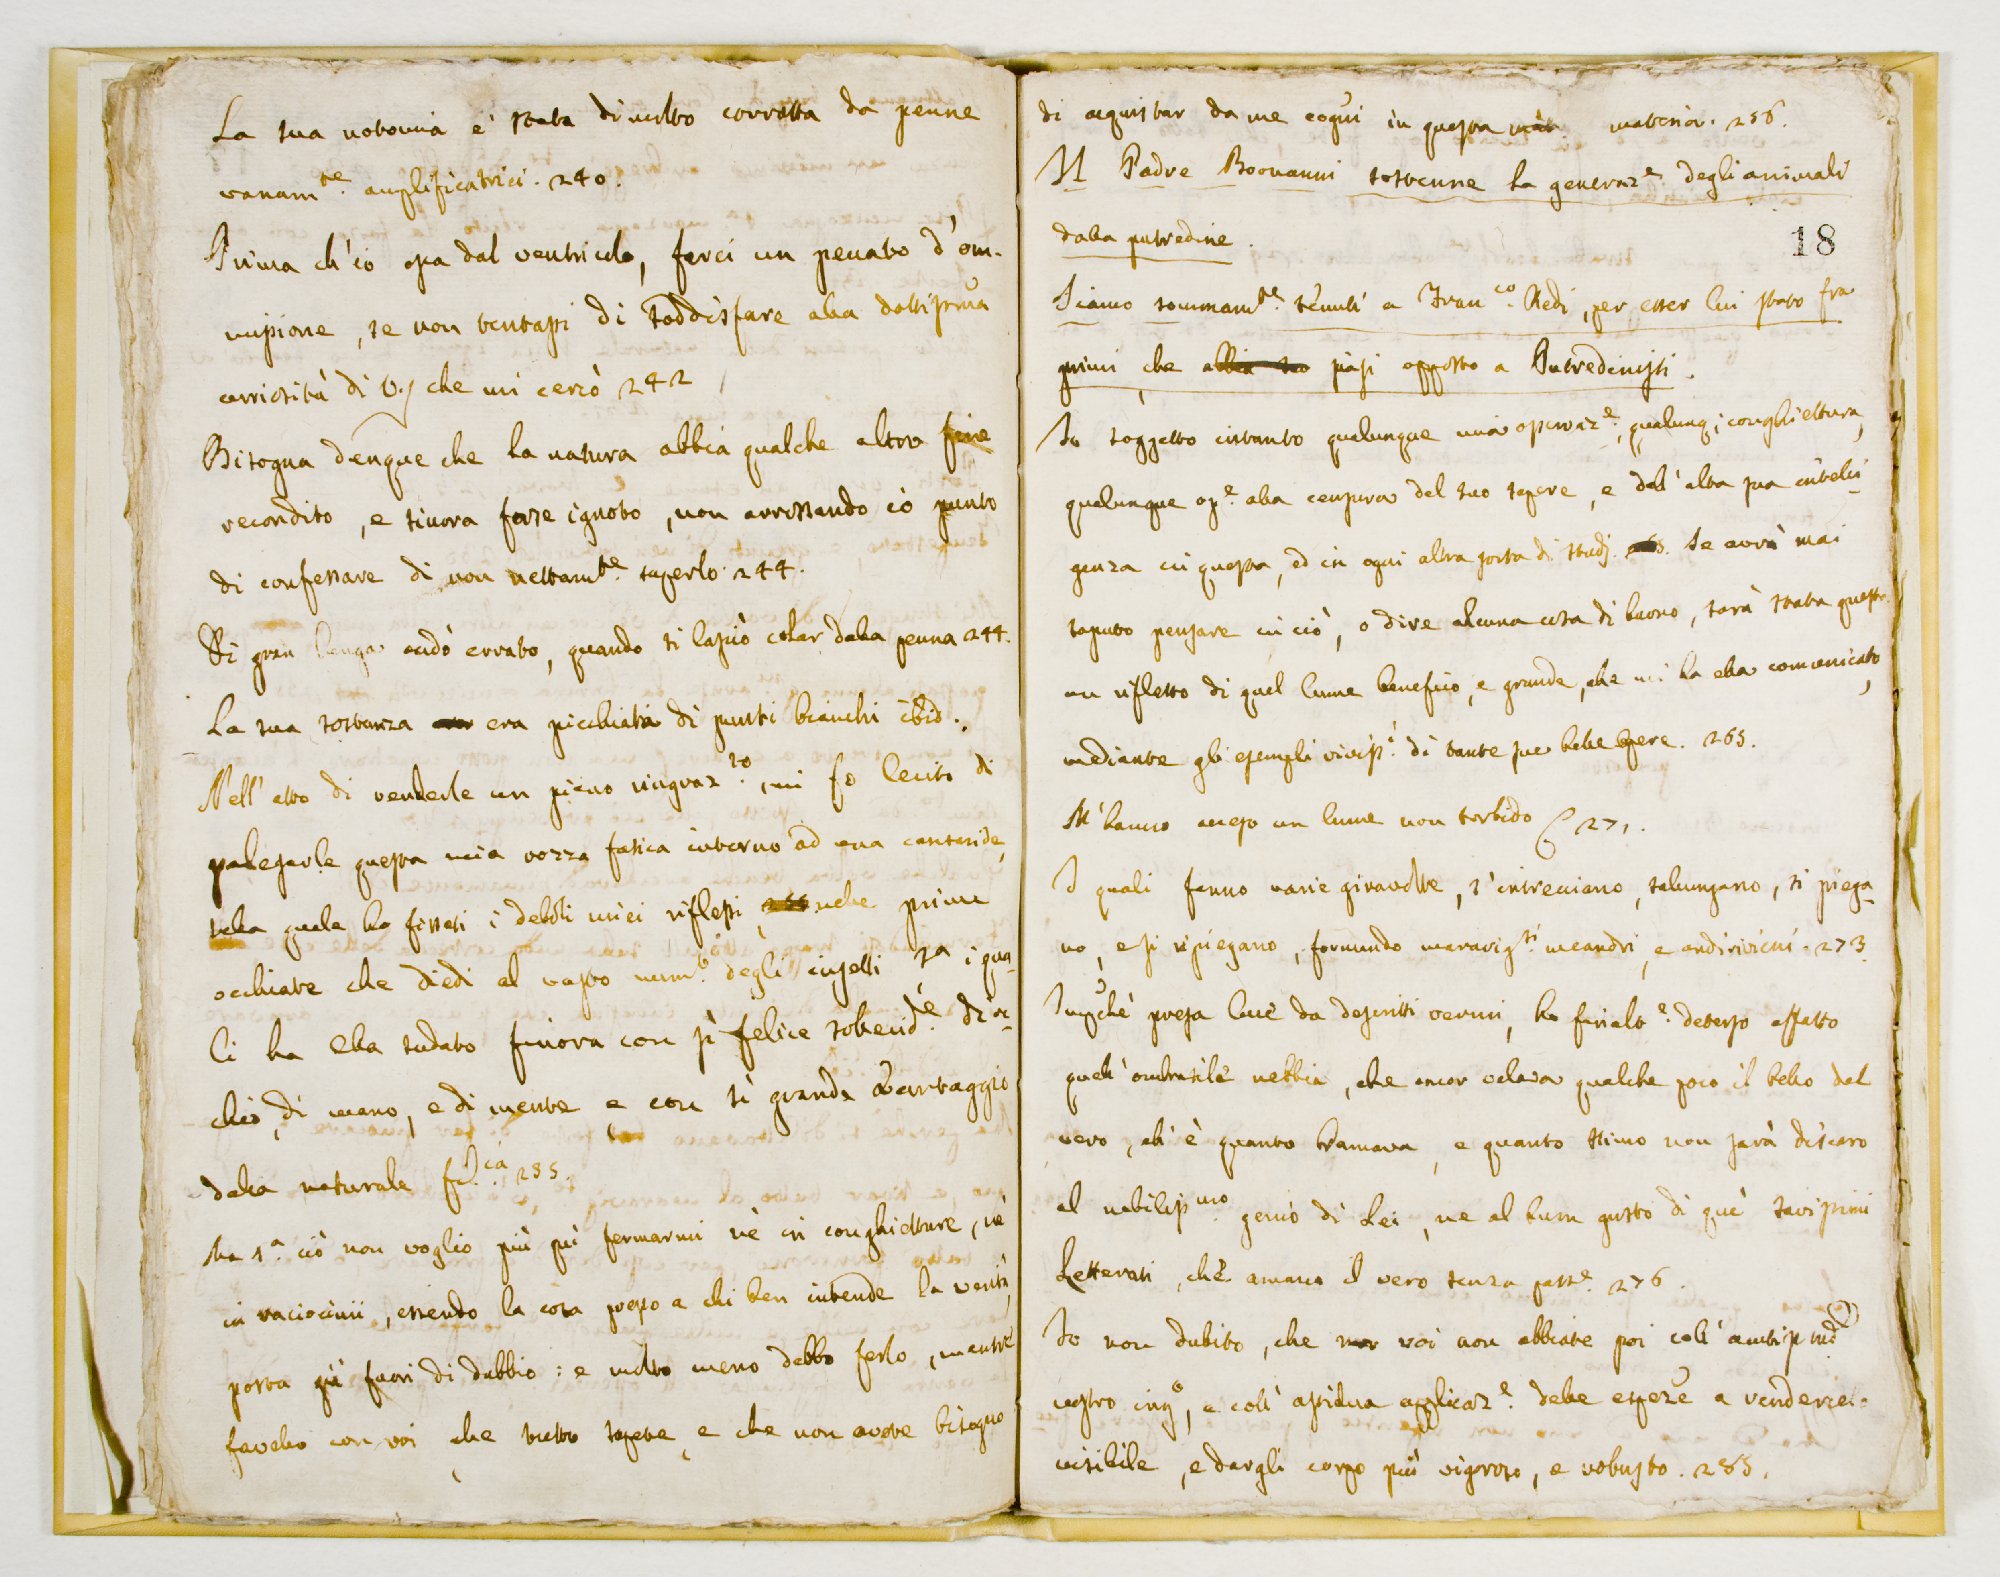 La sua notomia è stata di molto corrotta da penne
vanam.te amplificatrici. 240.
Prima ch'io esca dal ventricolo, farei un peccato d'om-
missione, se non tentassi di soddisfare alla dottissima
curiosità di V.S. che mi cercò 242
Bisogna dunque che la natura abbia qualche altro fine
recondito, e sinora forse ignoto, non arrossando io punto
di confessare di non nettam.te saperlo. 244.
Di gran lunga andò errato, quando si lasciò colar dalla penna 244.
La sua sostanza era picchiata di punti bianchi ibid.
Nell'atto di renderle un pieno ringraz.to, mi fo lecito di
palesarle questa mia rozza fatica intorno ad una cantaride,
sulla quale ho fissati i deboli miei riflessi, nelle prime
occhiate che diedi al vasto num.o degli insetti sa i qua-
li ha Ella sudato finora con sì felice sollecid.e di oc-
chio, di mano, e di mente e con sì grande vantaggio
della naturale fil.ca 255.
Ma s.a ciò non voglio più quì fermarmi nè in conghietture, nè
in raciocinii, essendo la cosa presso a chi ben intende la verità,
posta già fuori di dubbio: e molto meno debbo farlo, mentre
favello con voi che tutto sapete, e che non avete bisogno
di acquistar da me logui in questa materia. 256.
Il Padre Boonanni sostenne la generaz.e degli animali
dalla putredine.
18
Siamo sommam.te tenuti a Fran.co Redi, per esser lui stato fra
primi, che siasi opposto a Putredinisti.
Io soggetto intanto qualunque mia operaz.e, qualunq; conghiettura,
qualunque op.e alla censura del suo sapere, e dell'alta sua intelli-
genza in questa, ed in ogni altra sorta di studj. Se avrò mai
saputo pensare in ciò, o dire alcuna cosa di buono, sarà stata questa
un riflesso di quel lume benefico, e grande, che mi ha ella comunicato,
mediante gli esempli vivis.i di tante sue belle opere. 265.
M'hanno acceso un lume non torbido 271.
I quali fanno varie giravolte, s'intrecciano, s'allungano, si piega-
no, e si ripiegano, formando maravig.si meandri, e andirivieni. 273
Imp.chè presa luce da descritti vermi, ha finalt.e deterso affatto
quell'ombratile nebbia, che ancor velava qualche poco il bello del
vero, ch'è quanto bramava, e quanto stimo non sarà discaro
al nobiliss.mo genio di Lei, ne al buon gusto di què savissimi
Letterati, chè amano il vero senza pass.e 276.
Io non dubito, che voi non abbiate poi coll'
vostro ing.o, e coll'assidua applicaz.e delle esperze a rendercel-
visibile, e dargli corpo più vigoroso, e robusto. 285.